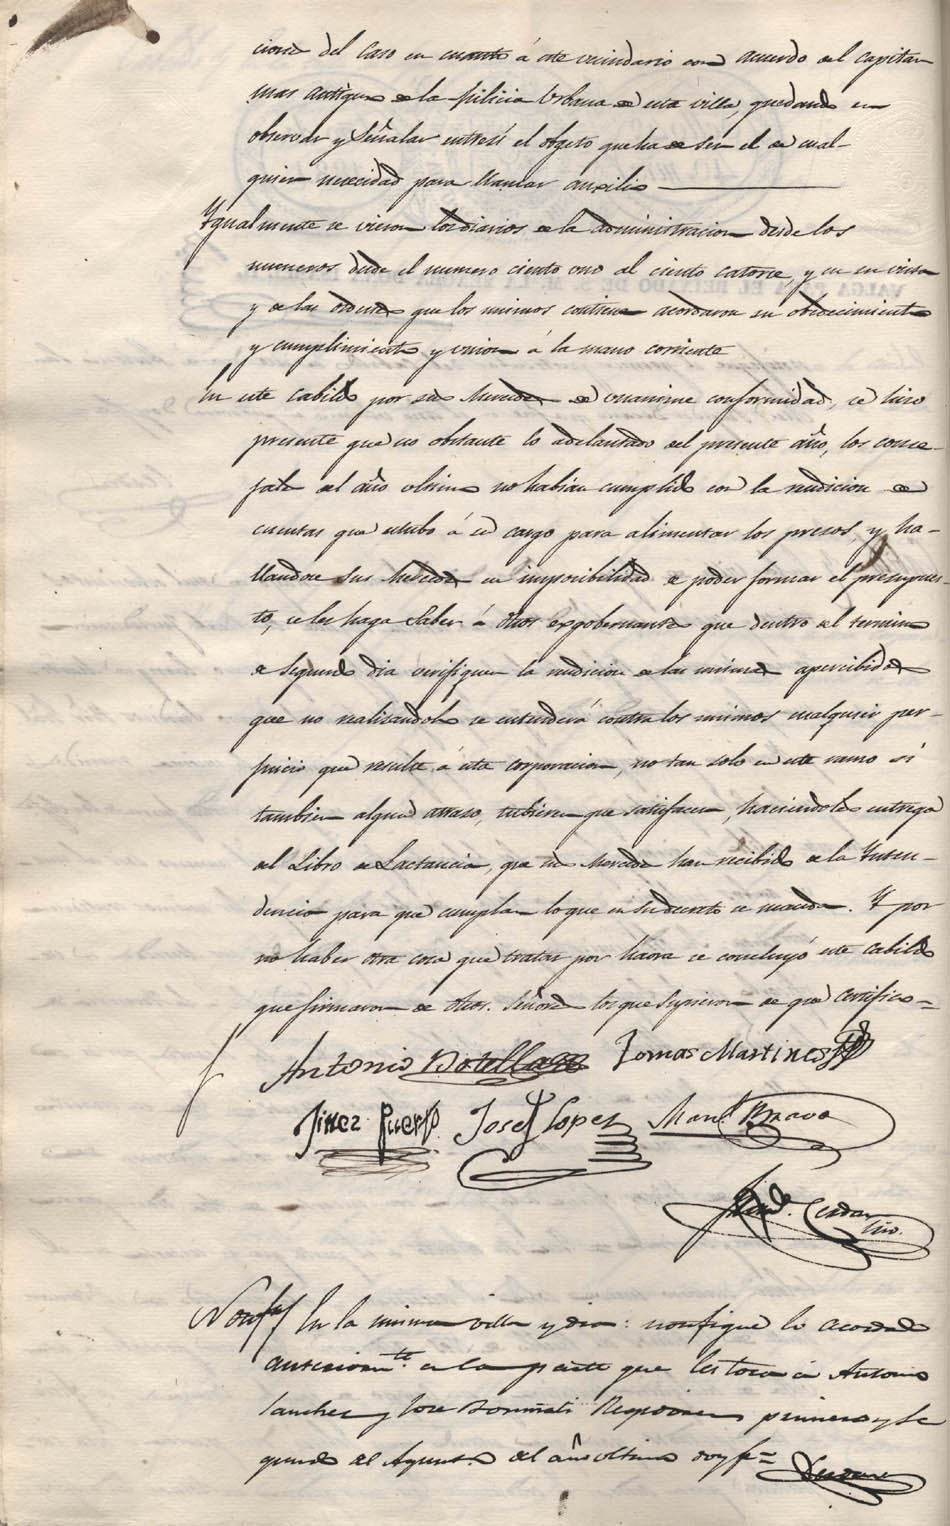 ciones del caso en cuanto á este vecindario con acuerdo del capitan
mas antiguo de la Milicia Urbana de esta villa, quedando en
observar y Señalar entresi el objeto que ha de ser el de cual-
quier necesidad para llamar auxilio
Ygualmente se vieron los diarios de la administracion desde los
numeros desde el numero ciento uno al ciento catorce, y en su vista
y de las ordenes que los mismos contienen acordaron su obedecimiento
y cumplimiento y union á la mano corriente
En este Cabildo por sus Mercedes de unanime conformidad, se hizo
presente que no obstante lo adelantado del presente año, los conce-
jales del año ultimo no habian cumplido con la rendicion de
cuentas que estubo á su cargo para alimentar los presos y ha-
llandose Sus Mercedes en imposibilidad de poder formar el presupues-
to, se les haga Saber á dhos exgobernantes que dentro del termino
de segundo dia verifiquen la rendicion de las mismas apercibidos
que no realisandolo se entenderá contra los mismos cualquier per-
juicio que resulte á esta corporacion, no tan solo en este ramo si
tambien algun atraso, tubieren que satisfacer, haciendoles entrega
del Libro de Lactancia, que sus Mercedes han recibido de la Yntend-
dencia para que cumplan lo que en su decreto se manda. Y por
no haber otra cosa que tratar por haora se concluyó este Cabildo
que firmaron de dhos. Señores los que Supieron de que certifico=
Antonio Botella Tomas Martines
Jimez Puerto Josef Lopez Man.l Bravo
Cerdan
Srio.
Notif En la misma villa y dia: notifique lo acordado
anteriorm.te en la parte que les toca á Antonio
Sanchez y Jose Regidores primero y Se
gundo del Ayunt.o del año ultimo doy fe= Cerdan